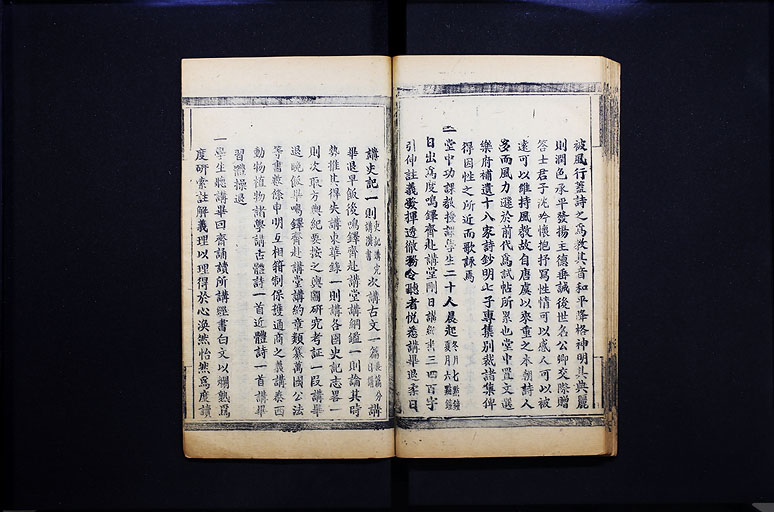 被風行蓋詩之為教其音和平降格神明其典麗
則潤色承平發揚主德垂誡後世名公卿交際贈
答士君子沈吟懷抱抒寫性情可以感人可以被
遠可以維持風教故自唐虞以來重之本朝詩人
多而風力遜於前代為試帖所累也堂中置文選
樂府補遺十八家詩鈔明七子專集別裁諸集俾
得因性之所近而歌詠焉
一堂中功課教授課學生二十人晨起冬月七點鐘夏月六點鐘
日出為度鳴鐸齊赴講堂剛日講經書三四百字
引伸註義發揮透徹務令聽者悅悉講畢退柔日
講史記一則史記講完講漢書次講古文一篇分講
畢退早飯後鳴鐸齊赴講堂講綱鑑一則論其時
勢推其得失講東華錄一則講各國史記志畧一
則次取方輿紀要按之輿圖研究考証一段講畢
退晚飯畢鳴鐸齊赴講堂講約章類纂萬國公法
等書數條申明互相箝制保護通商之義講泰西
動物植物諸學講古體詩一首近體詩一首講畢
習體操退
一學生聽講畢回齋誦讀所講經書白文以爛熟為
度研索註解義理以理得於心渙然怡然為度讀